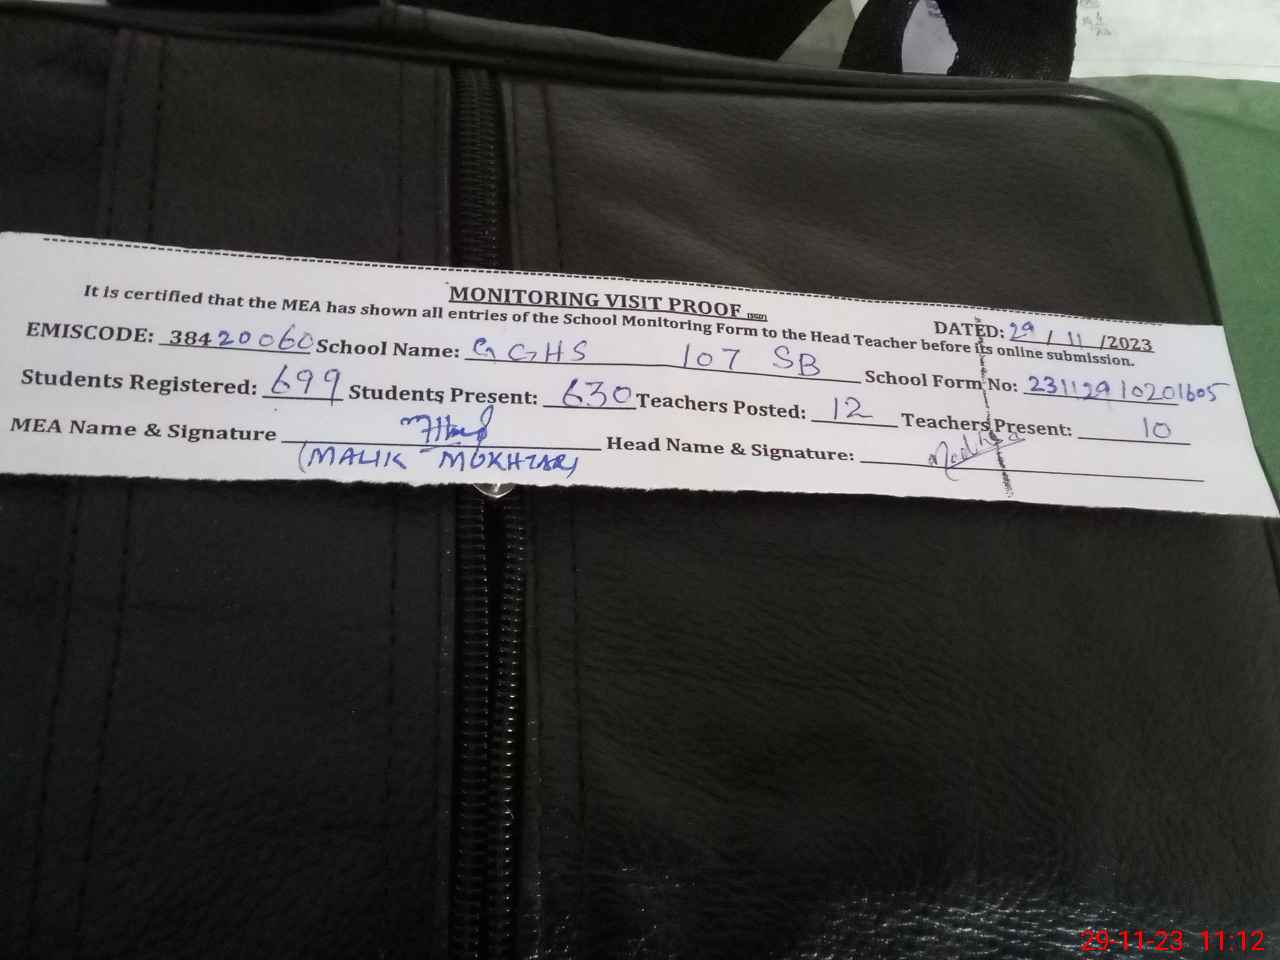 MONITORING VISIT PROOF
DATED: 29 / 11 /2023
It is certified that the MEA has shown all entries of the School Monitoring Form to the Head Teacher before its online submission.
EMISCODE: 38420060 School Name: GGHS 107 SB School Form No: 23112910201605
Students Registered: 699 Students Present: 630 Teachers Posted: 12 Teachers Present: 10
MEA Name & Signature Head Name & Signature: Madiha
(MALIK MUKHTAR)
29-11-23 11:12